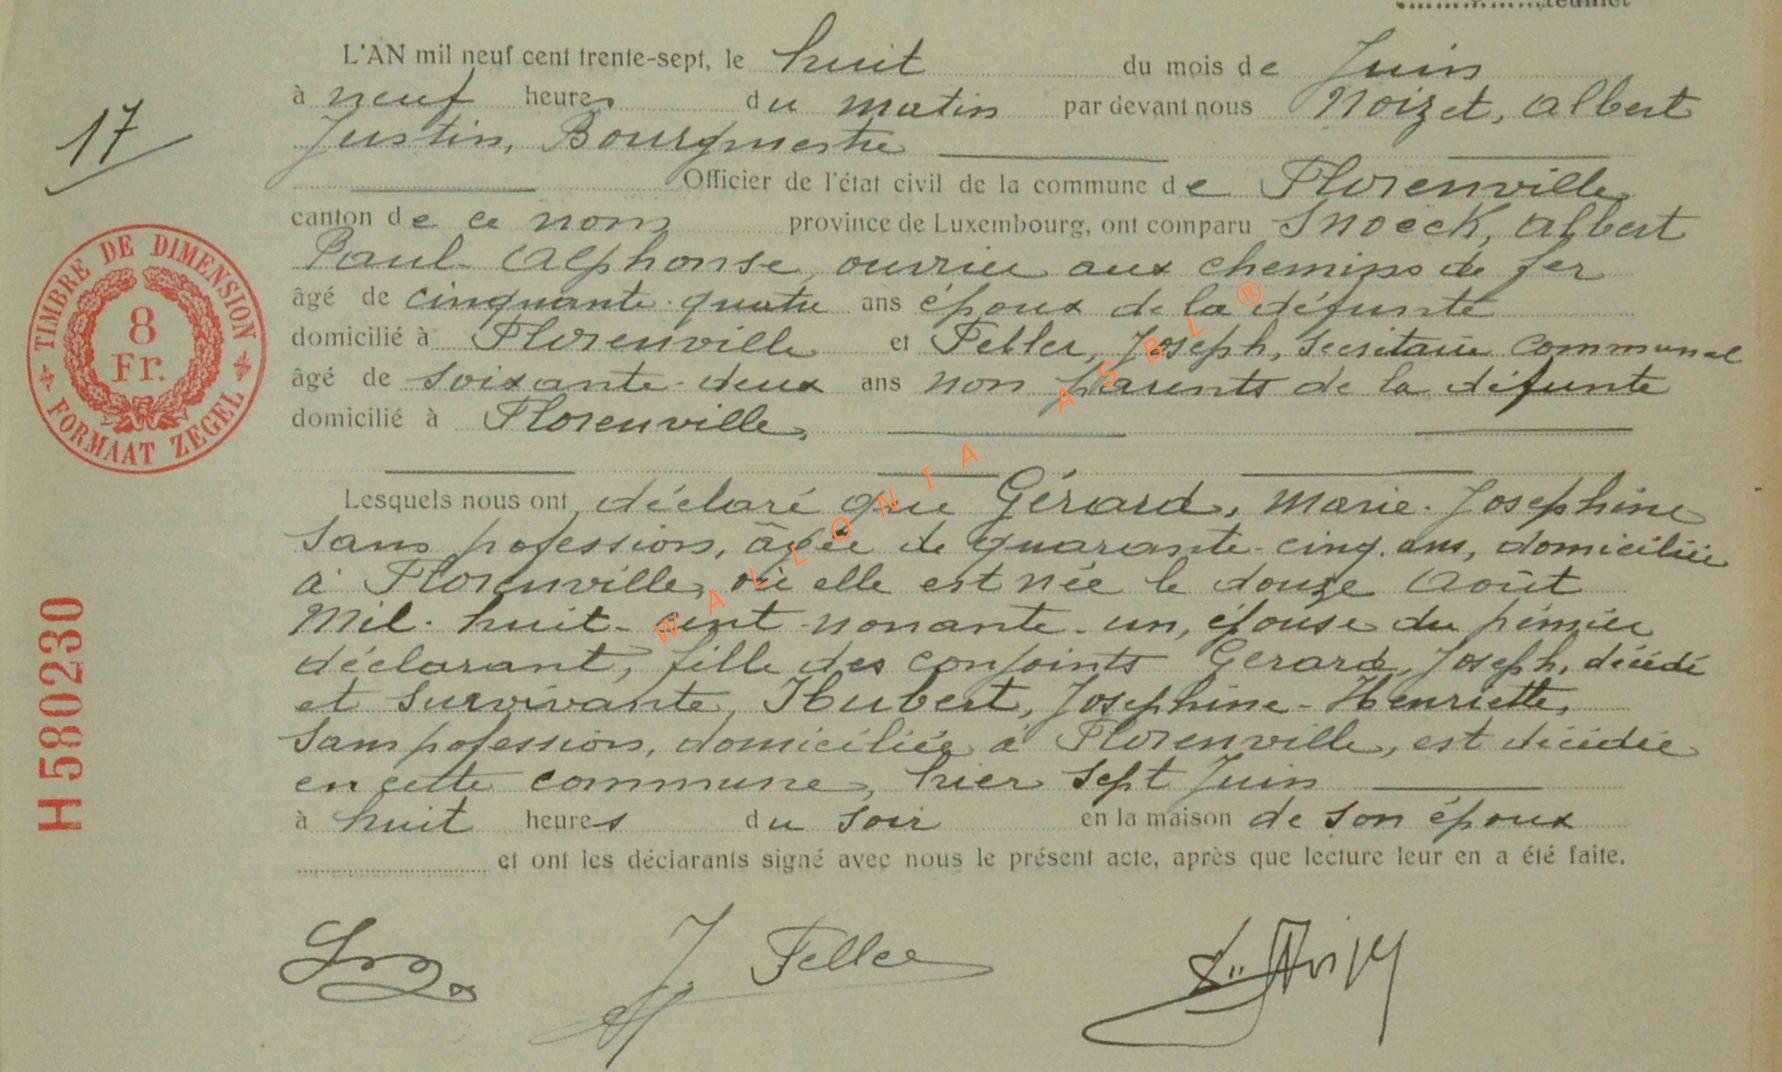 feuillet
L'AN mil neuf cent trente-sept, le huit du mois de Juin
à neuf heures du matin par devant nous Noizet, Albert
Justin, Bourgmestre
Officier de l'état civil de la commune de Florenville
canton de ce nom province de Luxembourg, ont comparu Snoeck, Albert
Paul-Alphonse, ouvrier aux chemins de fer
âgé de cinquante-quatre ans époux de la défunte
domicilié à Florenville et Feller, Joseph, Secrétaire Communal
âgé de soixante-deux ans non parents de la défunte
domicilié à Florenville,
Lesquels nous ont déclaré que Gérard, Marie-Josephine
sans pofession, âgée de quarante-cinq ans, domiciliée
à Florenville, où elle est née le douze Août
Mil-huit-cent-nonante-un, épouse du pémier
déclarant, fille des conjoints Gerard, Joseph, décédé
et survivante, Hubert, Josephine-Henriette,
sans pofession, domiciliée à Florenville, est décédée
en cette commune, hier sept Juin
à huit heures du soir en la maison de son époux
et ont les déclarants signé avec nous le présent acte, après que lecture leur en a été faite.
J. Feller
17
TIMBRE DE DIMENSION
8
Fr.
FORMAAT ZEGEL
H580230
WALLONIA ASBL ®